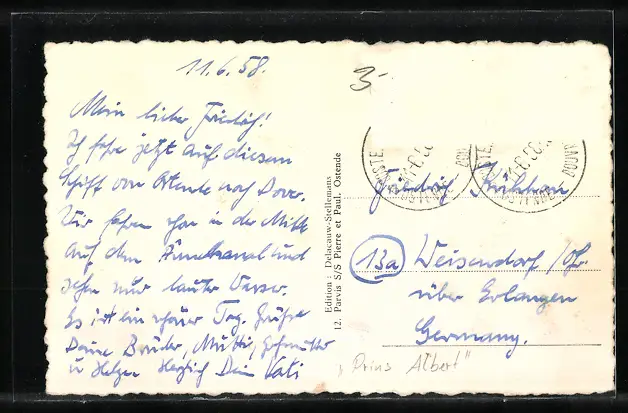 11.6.58.
Mein lieber Friedrich!
Ich fahre jetzt auf diesem
Schiff von Ostende nach Dover.
Wir fahren schon in der Mitte
auf dem Ärmelkanal und
sehen nur lauter Wasser.
Es ist ein schöner Tag. Grüße
Deine Brüder, Mutti, Großmutter
u. Helga Herzlich Dein Vati
Edition : Delacauw-Stellemans
12. Parvis S/S Pierre et Paul. Ostende
3-
Friedrich
13a Weisendorf /Ofr.
über Erlangen
Germany.
"Prins Albert"